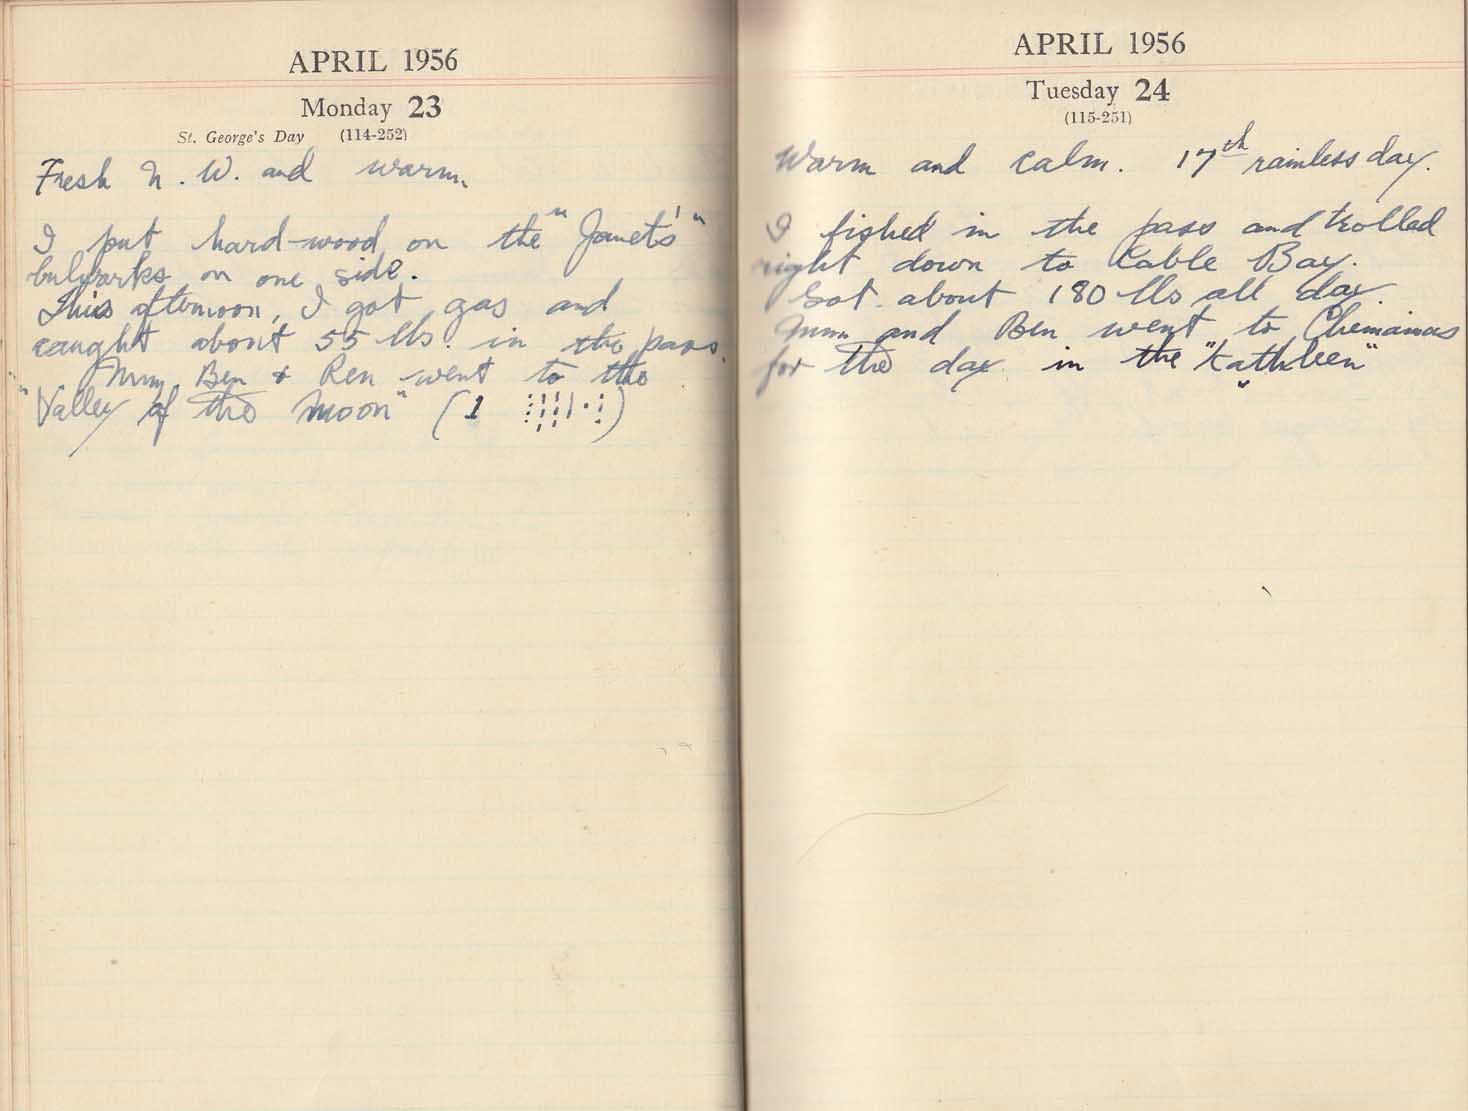 APRIL 1956
Monday 23
St. George's Day (114-252)
Fresh N. W. and warm.
I put hard-wood on the "Janet's"
bulwarks on one side.
This afternoon, I got gas and
caught about 55 lbs. in the pass.
Mum, Ben & Ren went to the
"Valley of the Moon" (1
APRIL 1956
Tuesday 24
(115-251)
Warm and calm. 17th rainless day.
I fished in the pass and trolled
right down to Cable Bay.
Got about 180 lbs all day.
Mum and Ben went to Chemainus
for the day in the "Kathleen"